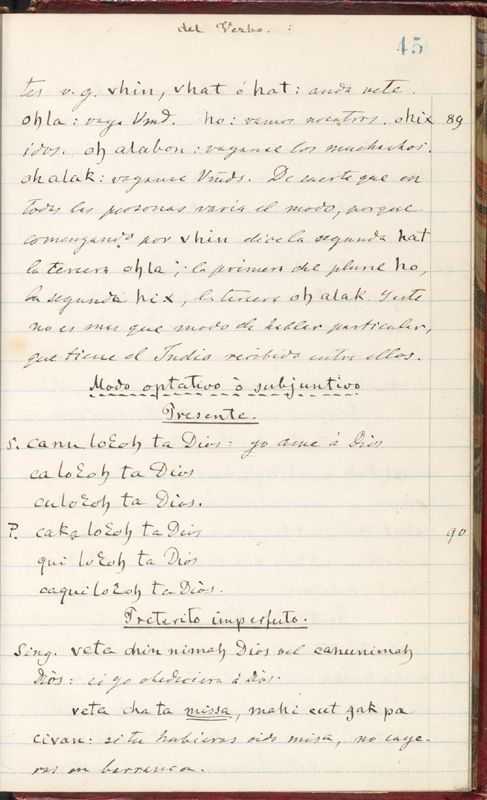 del Verbo.
45
tes v.g. vhin, vhat ó hat: anda vete.
ohla: vaya Vmd. ho: vamos nosotros. ohix 89
idos. oh alabon: vayanse los muchachos.
oh alak: vayanse Vmds. De suerte que en
todas las personas varia el modo, porque
comenzando por vhin dice la segunda hat
la tercera ohla; la primera de plural ho,
la segunda hix, la tercera oh alak. Y este
no es mas que modo de hablar particular,
que tiene el Indio recibido entre ellos.
Modo optativo ò subjuntivo
Presente.
S. canu loƐoh ta Dios: yo ame á Dios
ca loƐoh ta Dios
culoƐoh ta Dios.
P. caka loƐoh ta Dios 90
qui loƐoh ta Dios
caqui loƐoh ta Dios.
Preterito imperfecto.
Sing. veta chin nimah Dios vel canunimah
Dios: si yo obedeciera á Dios.
veta cha ta missa, mahi cut zak pa
civan: si tu hubieras oido misa, no caye-
ras en barranca.